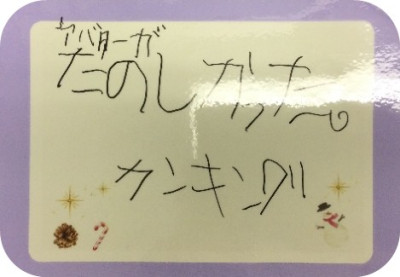 アバターが
たのしかった。
カンキング!!